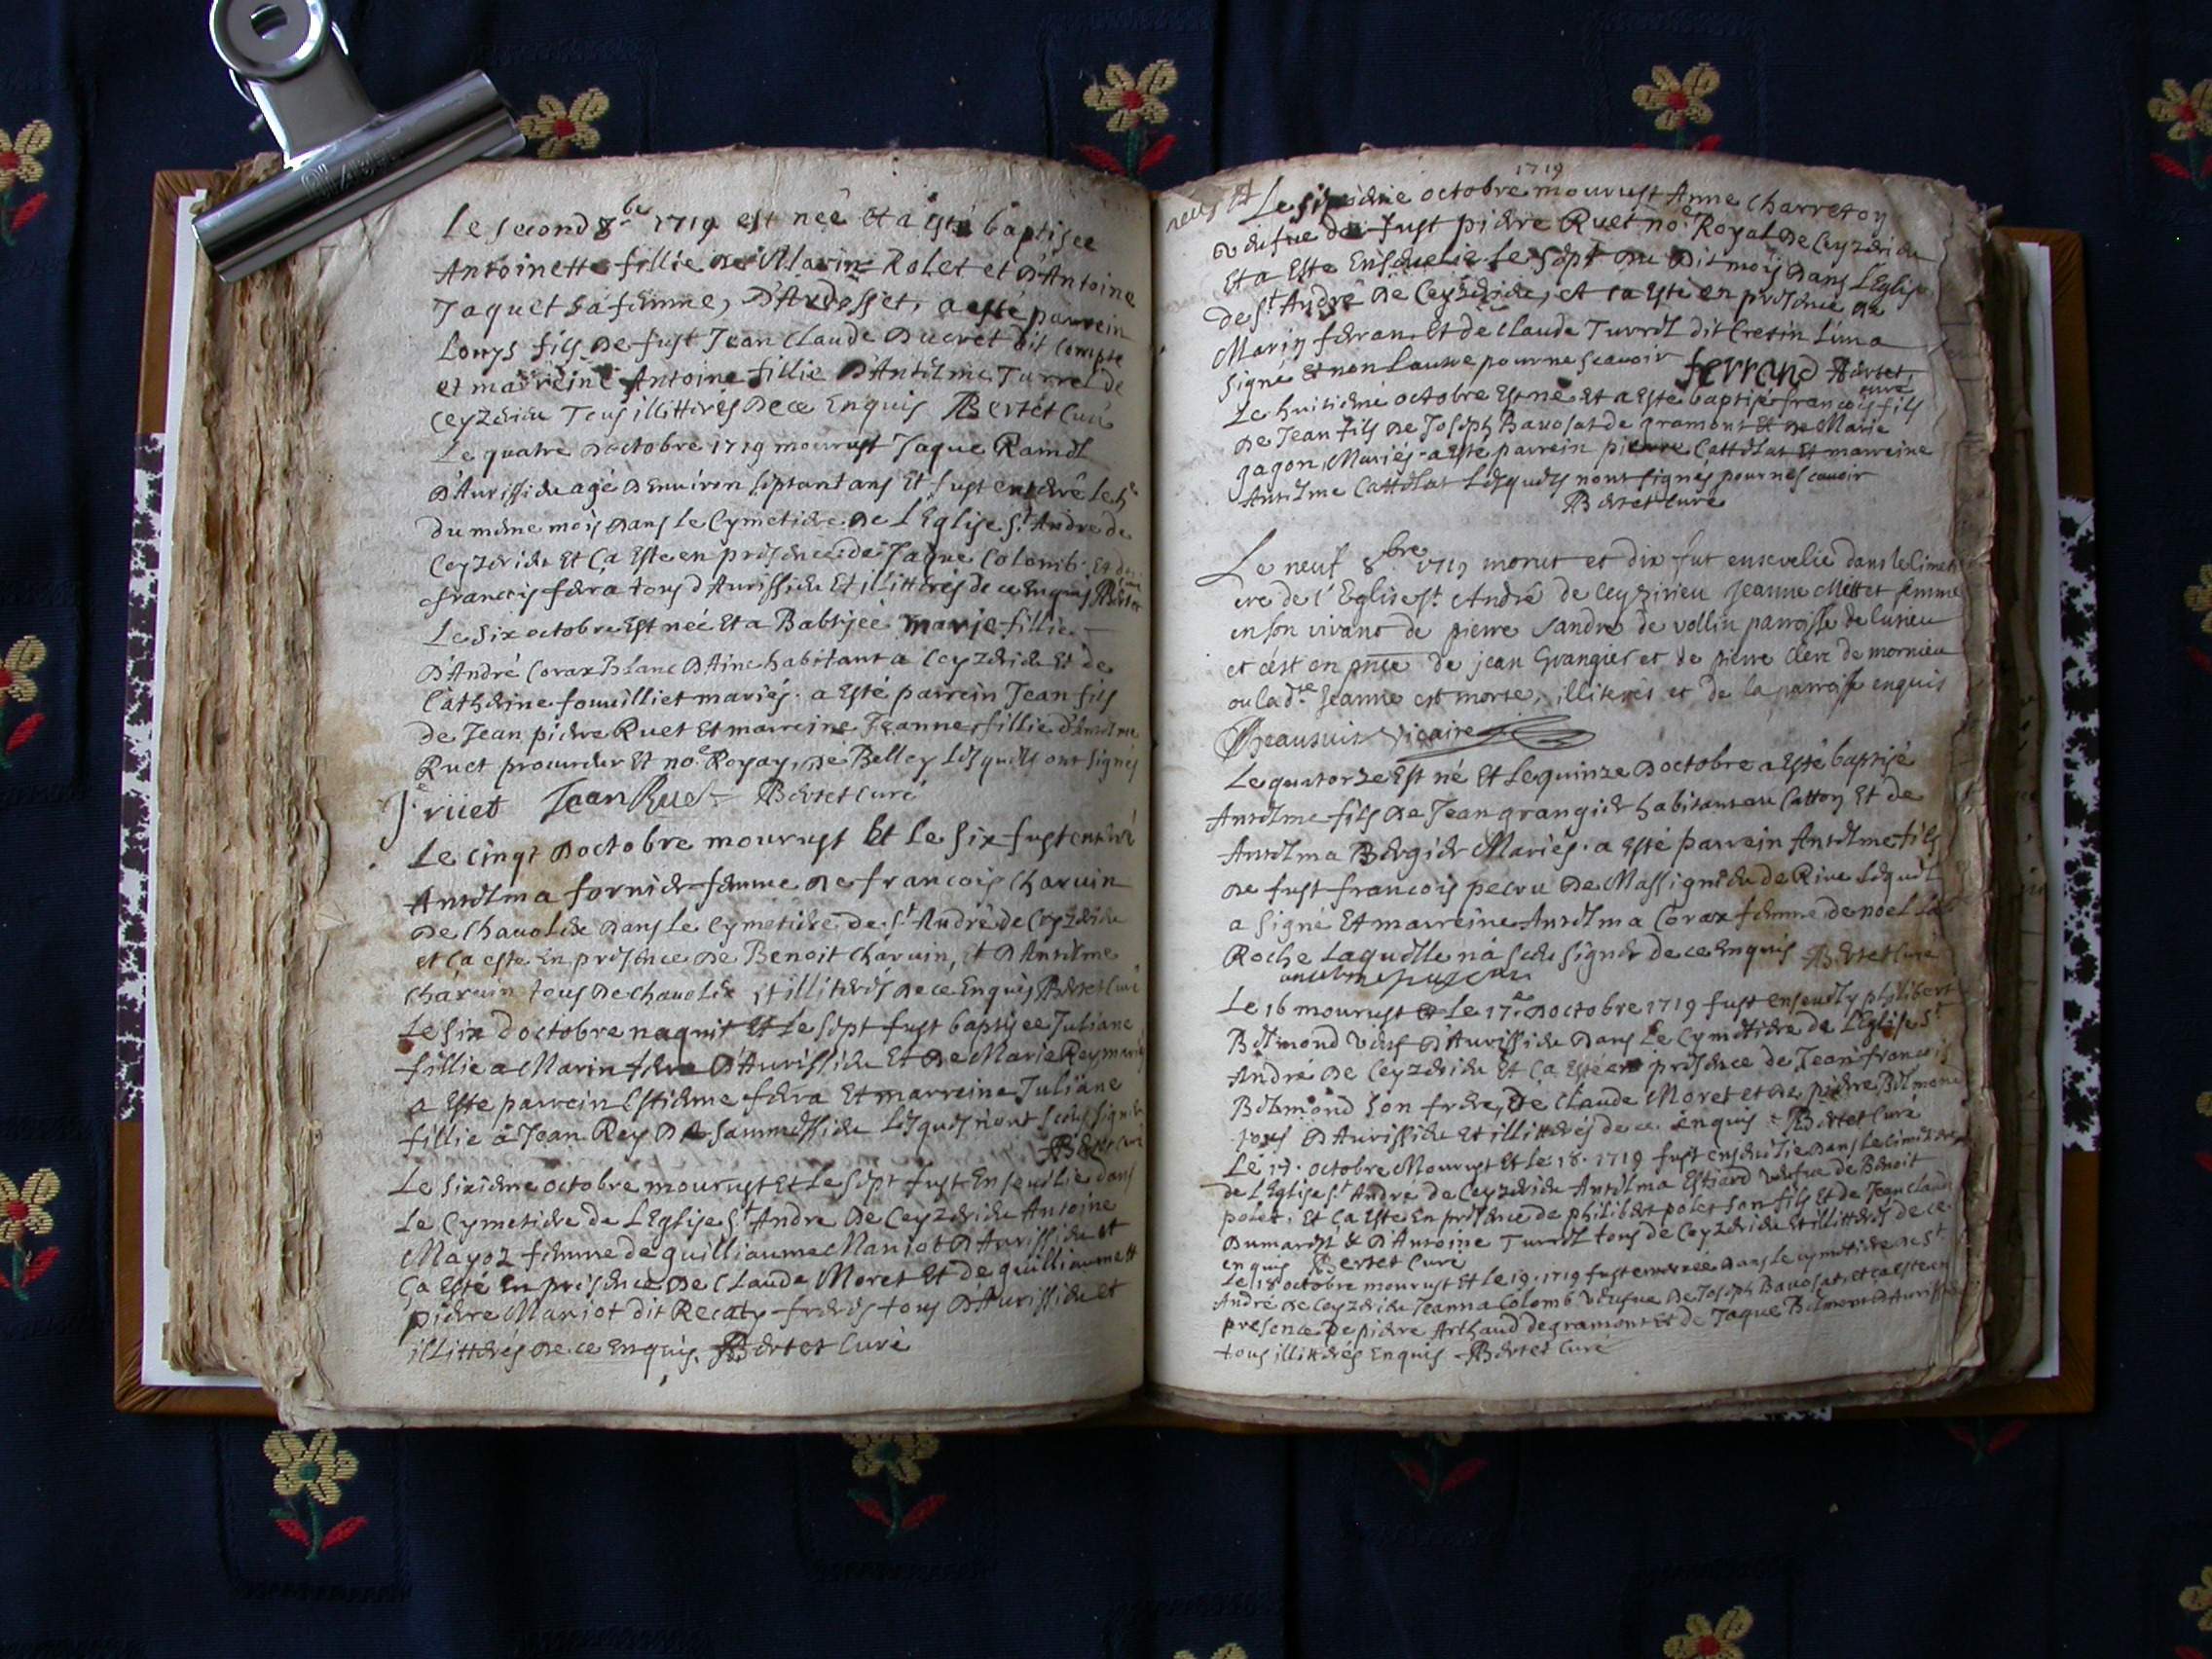 Le second 8.bre 1719 est neé et a esté baptisee
Antoinette fillie de Marin Rolet et d'Antoine
Jaquet sa femme, D'Ardosset, a esté parrein
Louys fils de fust Jean Claude Ducret dit Compte
et marreine Antoine fillie D'Antelme Turrel de
Ceyzerieu Tous illitterés de ce Enquis Bertet Curé
Le quatre d'octobre 1719 mourust Jaque Ramel
D'Aurissieu agé D'environ septant ans Et fust enterré le 5e
du meme mois Dans Le Cymetiere de L'Eglise St Andre de
Ceyzerieu Et Ca Este en presence de Jaque Colomb Et de
francois fera tous d'Aurissieu Et illitterés de ce Enquis Bertet
Le six octobre Est neé Et a Babtisée marie fillie
D'André Corax Blanc D'Aine habitant a Ceyzerieu Et de
Catherine fouuilliet mariés. a Esté parrein Jean fils
de Jean pierre Ruet Et marreine Jeanne fillie d'Antelme
Ruet procureur Et no.e Royay, de Belley Lesquells ont signés
J ruet Jean Ruet Bertet Curé
Le cinqt d'octobre mourust Et Le six fust enterré
Antelma fornier femme de francois Charuin
de Chavolex Dans Le Cymetiere de St André de Ceyzerieu
et Ca este en presence de Benoit Charuin, Et D'Antelme
Charuin tous de Chavolex Et illitterés de ce Enquis Bertet Curé
Le six d'octobre naquit Et Le sept fust baptisee Juliane
fillie a Marin fera D'Aurissieu Et de Marie Rey mariés
a Este parrein Estienne fera Et marreine Juliane
fillie à Jean Rey De Sammessieu Lesques n'ont sceu signer
Bertet Curé
Le sixieme octobre mourust Et Le sept fust Enseuelie dans
Le Cymetiere de L'Eglise St Andre de Ceyzerieu Antoine
Mayoz femme de guilliaume Maniot D'Aurissieu et
Ca Esté En presence de Claude Moret Et de guilliaume et
pierre Maniot dit Recaty freres tous D'Aurissieu et
illitterés de ce Enquis. Bertet Curé
1719
Le sixieme octobre mourust Anne Charreton
veufue de fust pierre Ruet no.e Royal de Ceyzerieu
Et a Este Enseuelie Le sept du Dit mois Dans L'Eglise
de St André de Ceyzerieu, et ca Este en presence de
Marin feran Et de Claude Turrel dit Cretin L'un a
signé Et non L'autre pour ne scauoir ferrand Bertet
curé
Le huitieme octobre Est né Et a Esté baptisé francois fils
de Jean fils de Joseph Bavosat de gramont Et de Marie
gagon Mariés. a Esté parrein pierre Cattelat Et marreine
Antelme Cattelat Lesquels n'ont signés pour ne scauoir
Bertet Curé
Le neuf 8.bre 1719 morut et dix fut ensevelie dans le Cimeti
ere de l'Eglise St. André de Ceyzirieu Jeanne Mettet femme
en son vivant de pierre Jandre de vollin parroisse de lusieu
et c'est en pnce de jean Grangier et de pierre Clerc de mornieu
ou lad.te Jeanne est morte, illiterés et de la parroisse enquis
Beausuis vicaire
Le quatorze Est né Et Le quinze D'octobre a Esté baptisé
Antelme fils de Jean grangier habitant au Catton Et de
Antelma Bergier Mariés. a Esté parrein Antelme fils
de fust francois pecru de Massignieu de Rive Lequel
a signé Et marreine Antelma Corax femme de noel La
Roche Laquelle n'a sceu signer de ce Enquis Bertet Curé
Le 16 mourust et Le 17e D'octobre 1719 fust enseuely philibert
Belmond veuf D'Aurissieu Dans Le Cymetiere de L'Eglise St
André de Ceyzerieu Et Ca Esté en presence de Jean francois
Belmond son frere, De Claude Moret et de pierre Belmond
tous D'Aurissieu Et illitterés de ce enquis Bertet Curé
Le 17. octobre Mourust Et Le 18. 1719 fust enseuelie Dans Le Cimetiere
de L'Eglise St André de Ceyzerieu Antelma Estiard veufue de Benoit
polet. Et Ca Este En presence de philibert polet son fils Et de Jean Claude
Dumarest & D'Antoine Turrel tous de Ceyzerieu Et illitterés de ce
enquis Bertet Curé
Le 18 octobre mourust Et Le 19. 1719 fust enterrée Dans Le cymetiere de St
André de Ceyzerieu Jeanna Colomb veufue de Joseph Bavosat, et ca Este en
presence De pierre Arthaud de gramont Et de Jaque Belmont D'Aurissieu
tous illitterés Enquis Bertet Curé